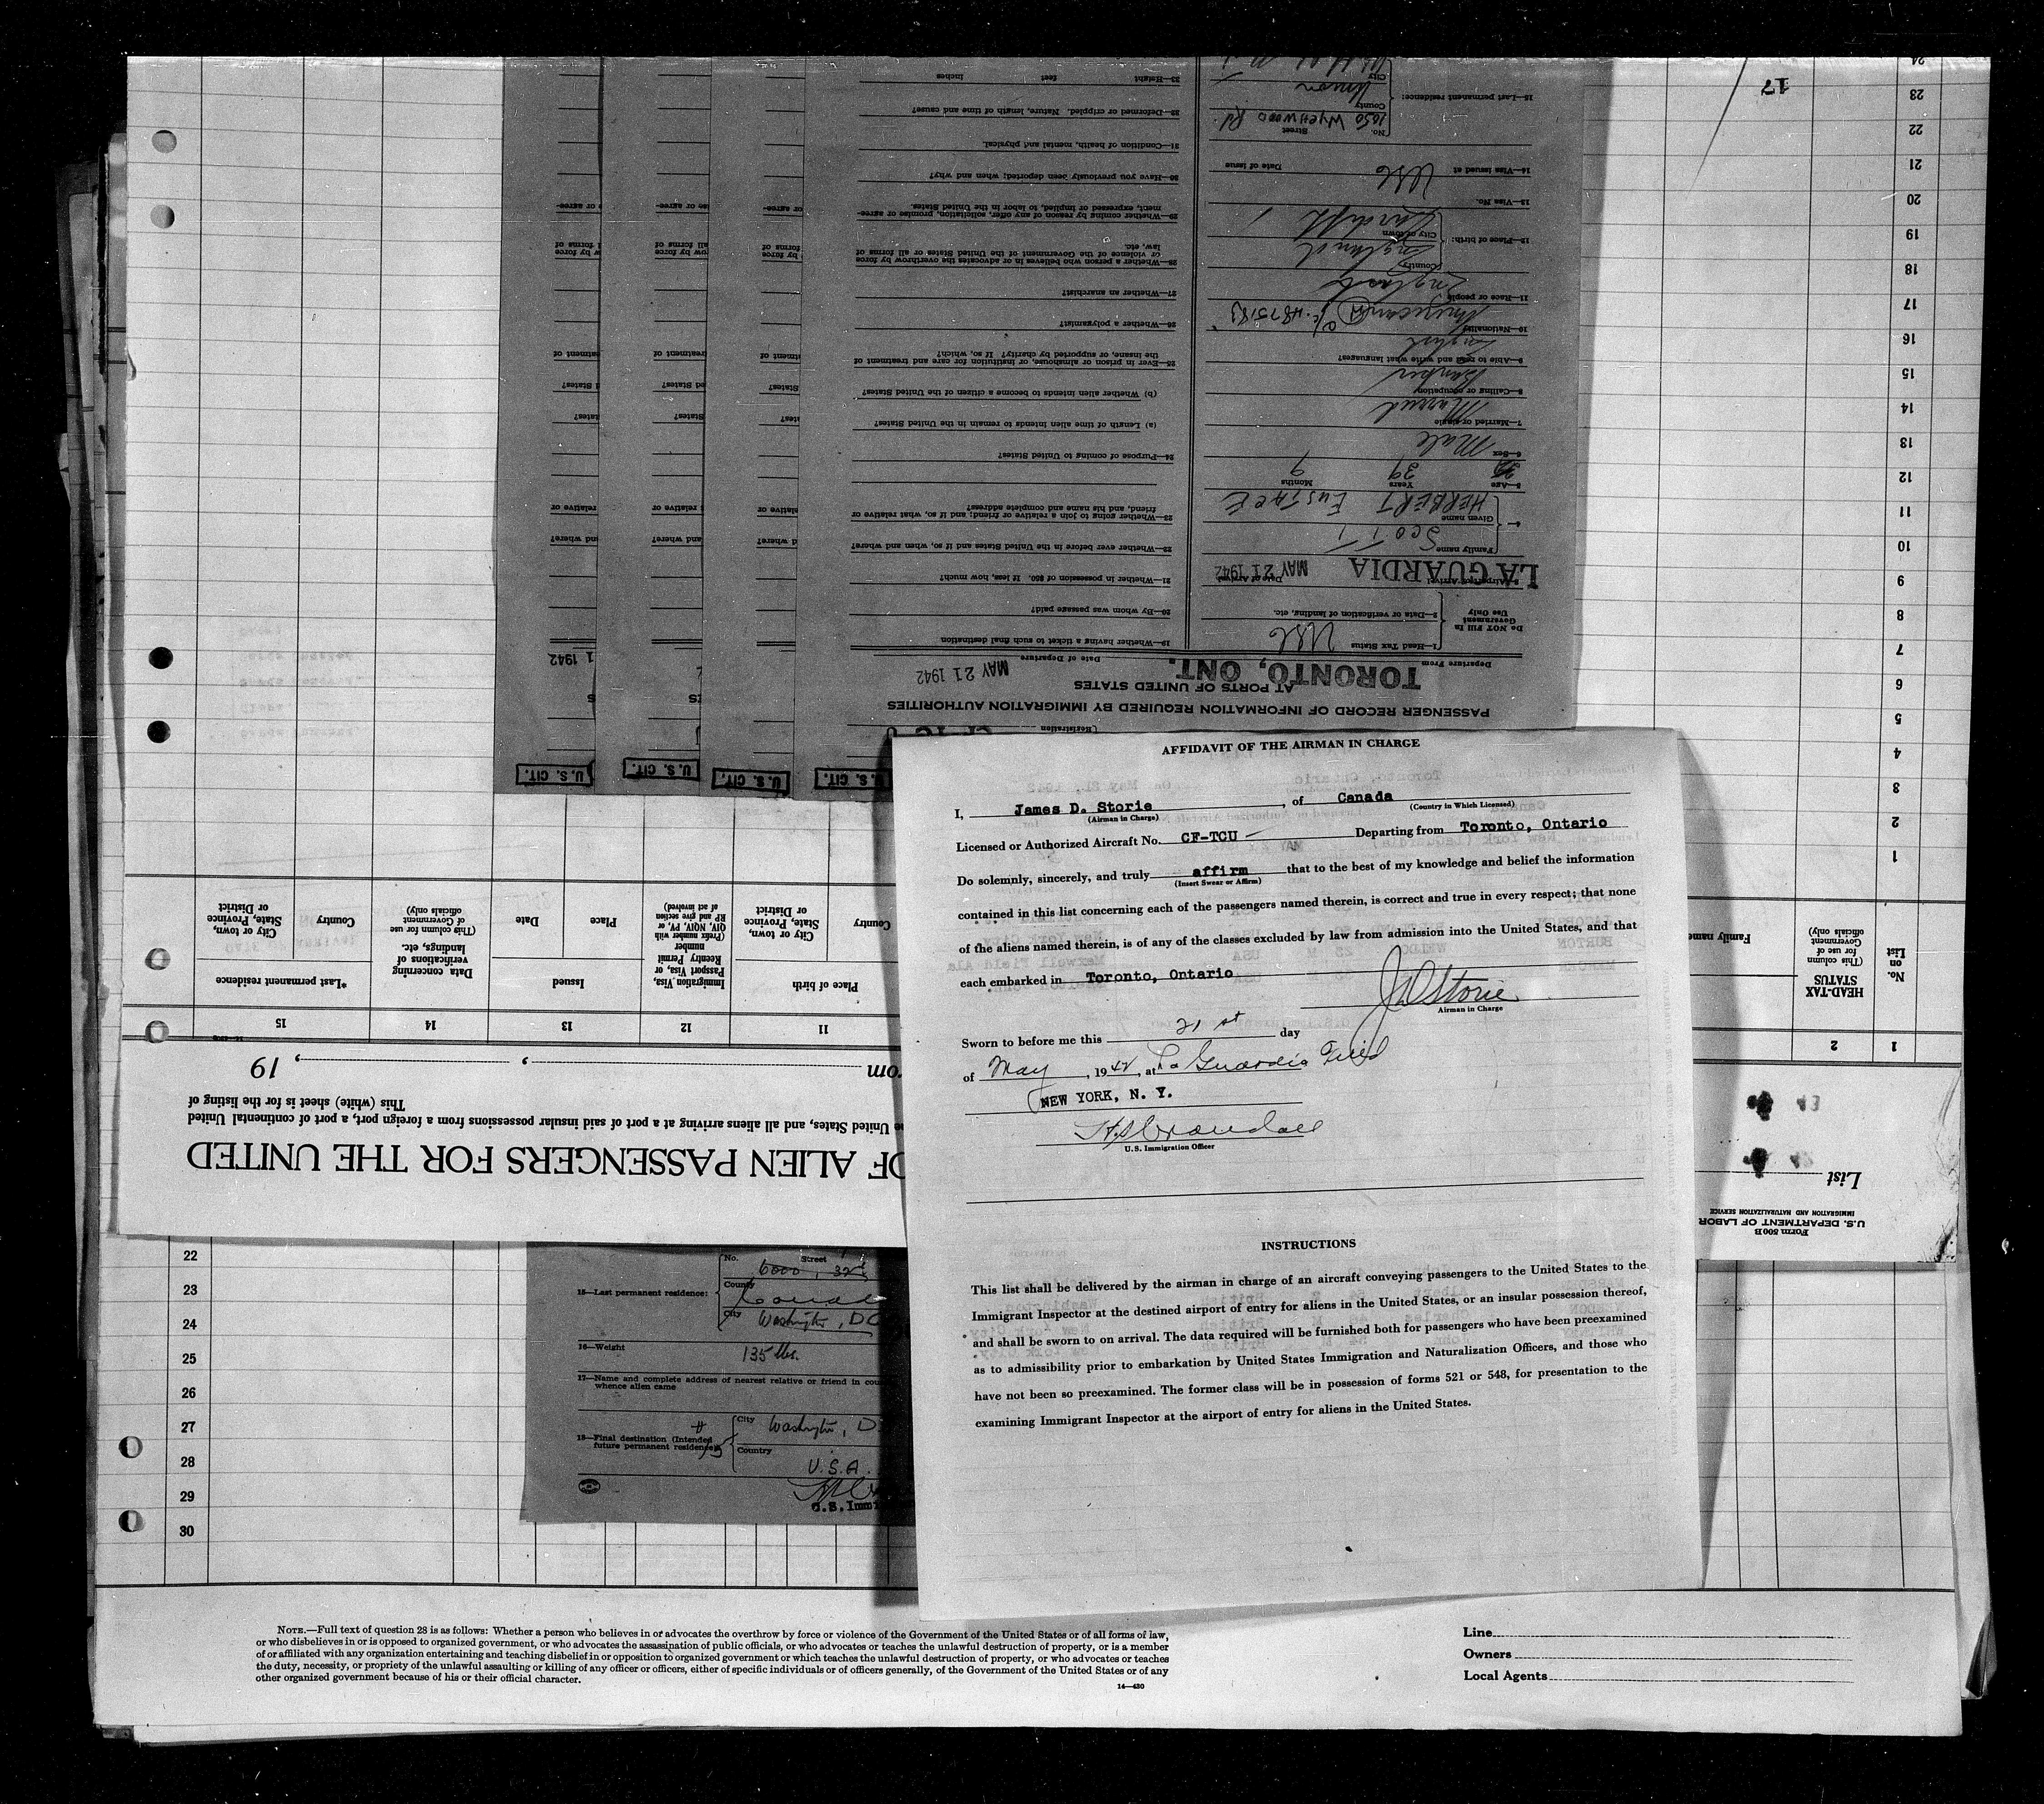 AFFIDAVIT OF THE AIRMAN IN CHARGE
I, James D. Storie, of Canada
(Airman in Charge) (Country in Which Licensed)
Licensed or Authorized Aircraft No. CF-TCU Departing from Toronto, Ontario
Do solemnly, sincerely, and truly affirm that to the best of my knowledge and belief the information
(Insert Swear or Affirm)
contained in this list concerning each of the passengers named therein, is correct and true in every respect; that none
of the aliens named therein, is of any of the classes excluded by law from admission into the United States, and that
each embarked in Toronto, Ontario
J D Storie
Airman in Charge
Sworn to before me this 21 st day
of May, 1942, at La Guardia Field
NEW YORK, N. Y.
U.S. Immigration Officer
INSTRUCTIONS
This list shall be delivered by the airman in charge of an aircraft conveying passengers to the United States to the
Immigrant Inspector at the destined airport of entry for aliens in the United States, or an insular possession thereof,
and shall be sworn to on arrival. The data required will be furnished both for passengers who have been preexamined
as to admissibility prior to embarkation by United States Immigration and Naturalization Officers, and those who
have not been so preexamined. The former class will be in possession of forms 521 or 548, for presentation to the
examining Immigrant Inspector at the airport of entry for aliens in the United States.
U.S. CIT.
U.S. CIT.
U.S. CIT.
U.S. CIT.
PASSENGER RECORD OF INFORMATION REQUIRED BY IMMIGRATION AUTHORITIES
AT PORTS OF UNITED STATES
Departure From TORONTO, ONT. Date of Departure MAY 21 1942
Do NOT Fill In
Government
Use Only
1—Head Tax Status USC
2—Data or verification of landing, etc.
3—Airport of Arrival LA GUARDIA Date of Arrival MAY 21 1942
4— Family name SCOTT
Given name HERBERT EUSTACE
5—Age 39 Years 9 Months
6—Sex Male
7—Married or single Married
8—Calling or occupation Banker
9—Able to read and write what languages? English
10—Nationality American
11—Race or people English
12—Place of birth: Country England
City or town Cardiff
13—Visa No.
14—Visa issued at USC Date of issue
15—Last permanent residence: No. 1050 Street Wyehwood Rd.
County Union
City
19—Whether having a ticket to such final destination
20—By whom was passage paid?
21—Whether in possession of $50. If less, how much?
22—Whether ever before in the United States and if so, when and where?
23—Whether going to join a relative or friend; and if so, what relative or
friend, and his name and complete address?
24—Purpose of coming to United States?
(a) Length of time alien intends to remain in the United States?
(b) Whether alien intends to become a citizen of the United States?
25—Ever in prison or almshouse, or institution for care and treatment of
the insane, or supported by charity? If so, which?
26—Whether a polygamist?
27—Whether an anarchist?
28—Whether a person who believes in or advocates the overthrow by force
or violence of the Government of the United States or all forms of
law, etc.
29—Whether coming by reason of any offer, solicitation, promise or agree-
ment, expressed or implied, to labor in the United States.
30—Have you previously been deported; when and why?
31—Condition of health, mental and physical.
32—Deformed or crippled. Nature, length of time and cause?
33—Height feet inches
Form 500B
U.S. DEPARTMENT OF LABOR
IMMIGRATION AND NATURALIZATION SERVICE
List
OF ALIEN PASSENGERS FOR THE UNITED
United States, and all aliens arriving at a port of said insular possessions from a foreign port, a port of continental United
This (white) sheet is for the listing of
, 19
1 2 11 12 13 14 15
No. on List
HEAD-TAX STATUS
(This column for use of Government officials only)
Family name
Place of birth
Country
City or town, State, Province or District
Immigration Visa, Passport Visa, or Reentry Permit number
(Prefix number with QIV, NQIV, PV, or RP and give section of act involved)
Issued
Place
Date
Data concerning verifications of landings, etc.
(This column for use of Government officials only)
*Last permanent residence
Country
City or town, State, Province or District
1
2
3
4
5
6
7
8
9
10
11
12
13
14
15
16
17
18
19
20
21
22
23
24
17
22
23
24
25
26
27
28
29
30
15—Last permanent residence: No. 6000 Street
County
City Washington, DC
16—Weight 135 lbs.
17—Name and complete address of nearest relative or friend in
whence alien came
18—Final destination (Intended
future permanent residence)
City Washington, D
Country U.S.A.
NOTE.—Full text of question 28 is as follows: Whether a person who believes in or advocates the overthrow by force or violence of the Government of the United States or of all forms of law,
or who disbelieves in or is opposed to organized government, or who advocates the assassination of public officials, or who advocates or teaches the unlawful destruction of property, or is a member
of or affiliated with any organization entertaining and teaching disbelief in or opposition to organized government or which teaches the unlawful destruction of property, or who advocates or teaches
the duty, necessity, or propriety of the unlawful assaulting or killing of any officer or officers, either of specific individuals or of officers generally, of the Government of the United States or of any
other organized government because of his or their official character.
14—430
Line
Owners
Local Agents